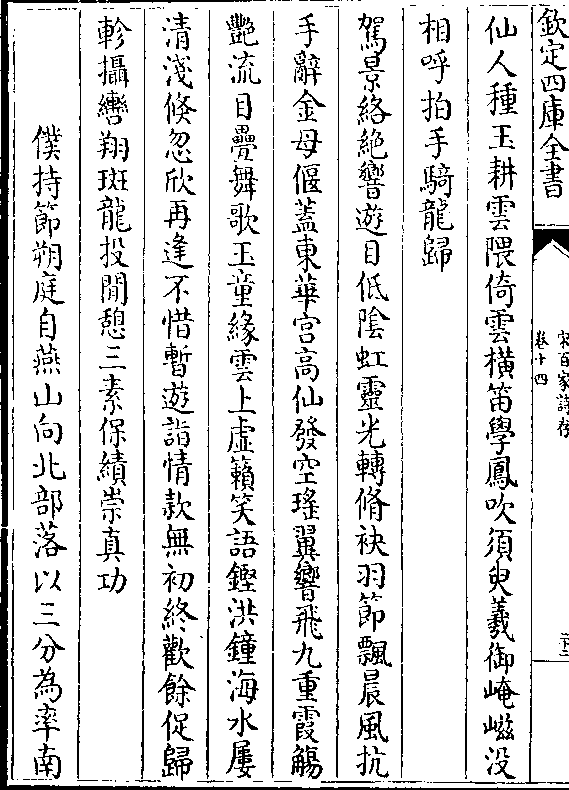 欽定四庫全書
宋百家詩存
卷十四
二十二
仙人種玉耕雲隈倚雲橫笛學鳳吹須臾羲御崦嵫没
相呼拍手騎龍歸
駕景絡絶響遊目低陰虹靈光轉脩袂羽節飄晨風抗
手辭金母偃蓋東華宮高仙發空瑤翼響飛九重霞觴
艷流目疊舞歌玉童緣雲上虛籟笑語鏗洪鐘海水屢
清淺倏忽欣再逢不惜暫遊詣情款無初終歡餘促歸
軫攝轡翔斑龍投閒憩三素保績崇真功
僕持節朔庭自燕山向北部落以三分為率南